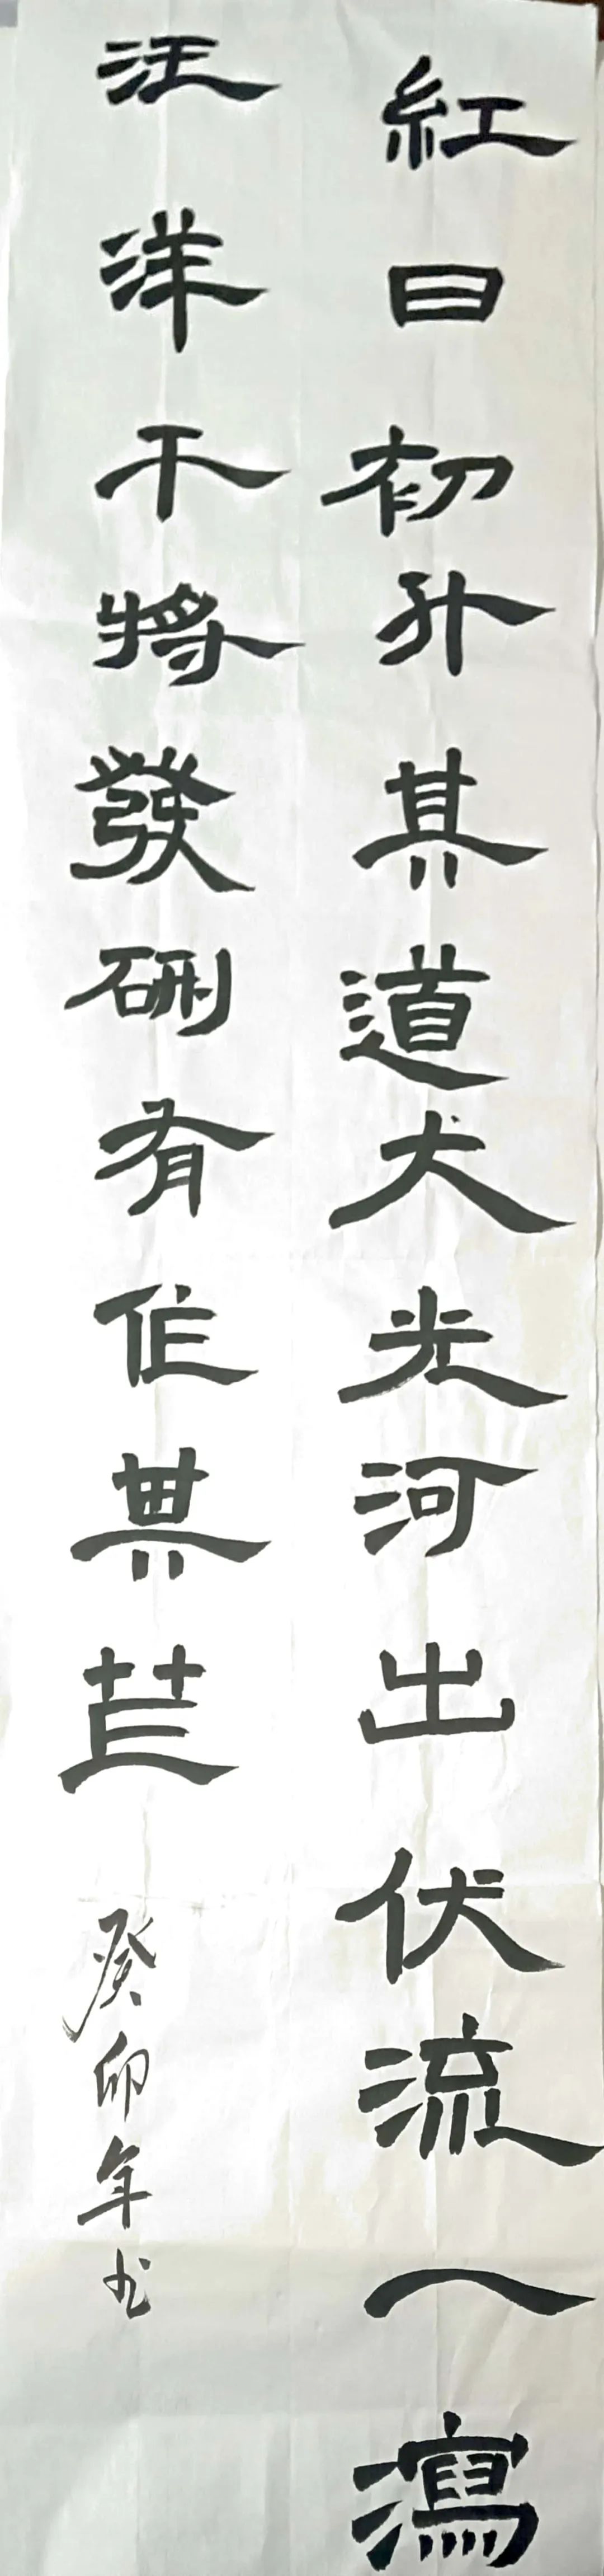 紅日初升其道大光河出伏流一瀉
汪洋干將發硎有作其芒
癸卯年书